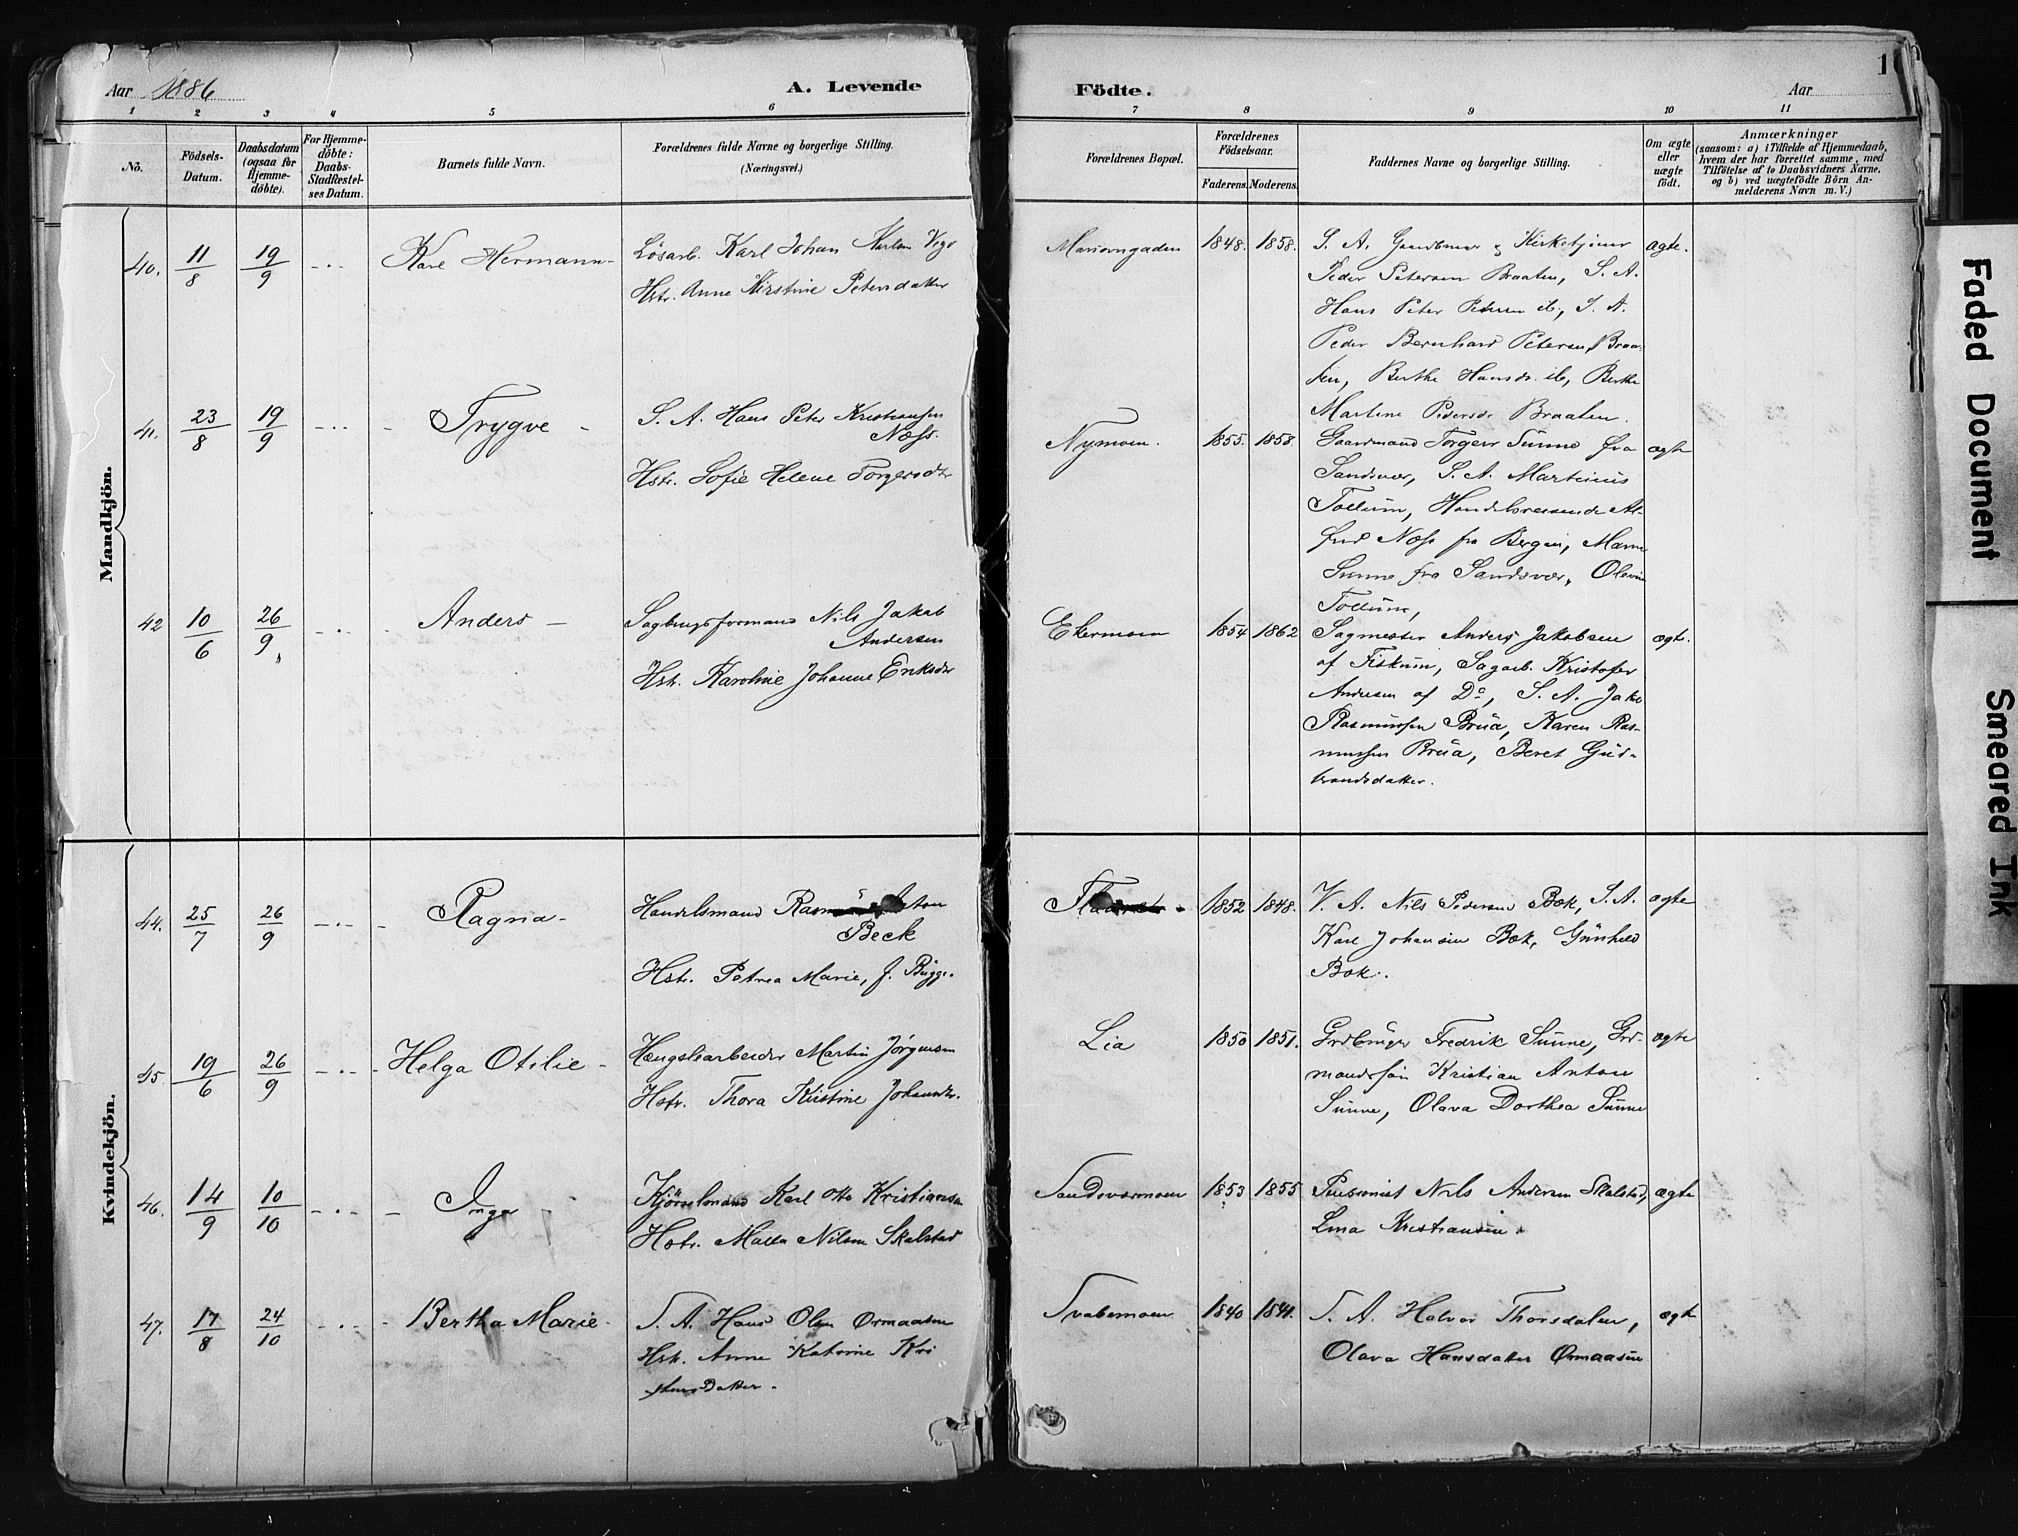 Aar 1886
A. Levende
Födte.
Aar
1
1 2 3 4 5 6 7 8 9 10 11
No.
Födsels-Datum.
Daabsdatum (ogsaa for Hjemme-döbte).
For Hjemme-döbte: Daabs-Stadfæstel-ses Datum.
Barnets fulde Navn.
Forældrenes fulde Navne og borgerlige Stilling. (Næringsvei.)
Forældrenes Bopæl.
Forældrenes Födselsaar.
Faderens. Moderens.
Faddernes Navne og borgerlige Stilling.
Om ægte eller uægte födt.
Anmærkninger
(saasom: a) i Tilfælde af Hjemmedaab, hvem der har forrettet samme, med Tilföielse af to Daabsvidners Navne, og b) ved uægtefödte Börn An-melderens Navn m. V.)
Mandkjön.
40. 11/8 19/9 Karl Hermann
Lösarb. Karl Johan
Hstr. Anne Kirstine Petersdatter
1848. 1858.
S. A. Gaardbruger & Kirketjener
Peder Petersen Braaten, S. A.
Hans Peter Petersen ib, S. A.
Peder Bernhard Petersen Braa-
ten, Berthe Hansdr. ib, Berthe
Martine Pedersdr Braaten.
ægte.
41. 23/8 19/9 Trygve
S. A. Hans Peter Kristiansen
Næss.
Hstr. Sofie Helene Torgersdtr
Nymoen. 1855. 1858.
Gaardmand Torger Sünne fra
Sandsvær, S. A. Martinius
Tollum, Handelsreisende Al-
fred Næss fra Bergen, Maren
Sunne fra Sandsvær, Olevine
Tollum,
ægte
42 10/6 26/9 Anders
Sagbrugsformand Nils Jakob
Andersen
Hstr. Karoline Johanne Eriksdtr
Ekermoen 1854 1862
Sagmester Anders Jakobsen
af Fiskum, Sagarb. Kristofer
Andersen af Do, S. A. Jakob
Rasmussen Brua, Karen Ras-
mussen Brua, Beret Gud-
brandsdatter.
ægte.
Kvindekjön.
44. 25/7 26/9 Ragna
Handelsmand Rasmus Anton
Beck
Hstr. Petrea Marie, f. Bügge.
1852 1848.
V. A. Nils Pedersen Bæk, S. A.
Karl Johansen Bæk, Günhild
Bæk.
ægte
45. 19/6 26/9 Helga Otilie
Hængslearbeider Martin Jörgensen
Hstr. Thora Kristine Johansdtr.
Lia 1850 1851.
Grdbruger Fredrik Sünne, Grd-
mandssön Kristian Anton
Sünne, Olava Dorthea Sünne
ægte
46. 14/9 10/10 Inga
Kjörselsmand Karl Otto Kristiansen
Hstr. Malla Nilsen Skalstad
Sandsværmoen 1853 1855
Pensionist Nils Andersen Skalstad,
Lina Kristiansen.
ægte
47. 17/8 24/10 Bertha Marie
S. A. Hans Olsen Ormaasen
Hstr. Anne Katrine Kri
stensdatter.
Svabemoen 1840 1841.
S. A. Halvor Thorsdalen,
Olava Hansdatter Ormaasen
ægte
Faded Document
Smeared Ink